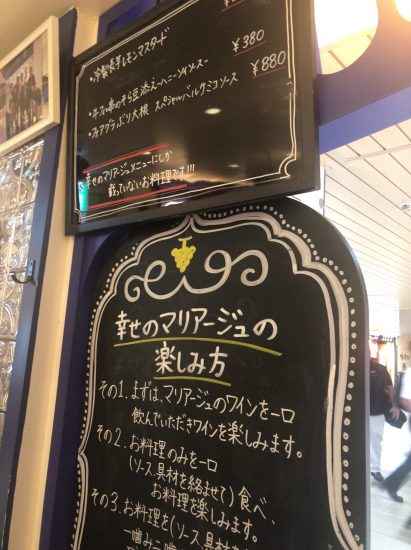 ・冷製長芋レモンマスタード ¥380
そら豆添え〜ハニーソイソース〜
・フォアグラぶり大根 スペシャルバルサミコソース ¥880
幸せのマリアージュメニューにしか
載っていないお料理です!!!
幸せのマリアージュの
楽しみ方
その1. まずは、マリアージュのワインを一口
飲んでいただきワインを楽しみます。
その2. お料理のみを一口
(ソース、具材を絡ませて)食べ、
お料理を楽します。
その3. お料理を(ソース、具材
一噛み二噛